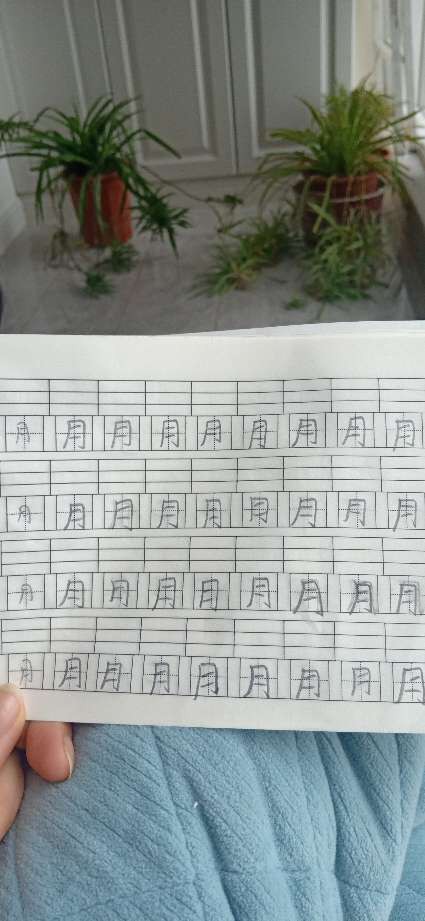 月 月 月 月 月 月 月 月 月
月 月 月 月 月 月 月 月 月
月 月 月 月 月 月 月 月 月
月 月 月 月 月 月 月 月 月